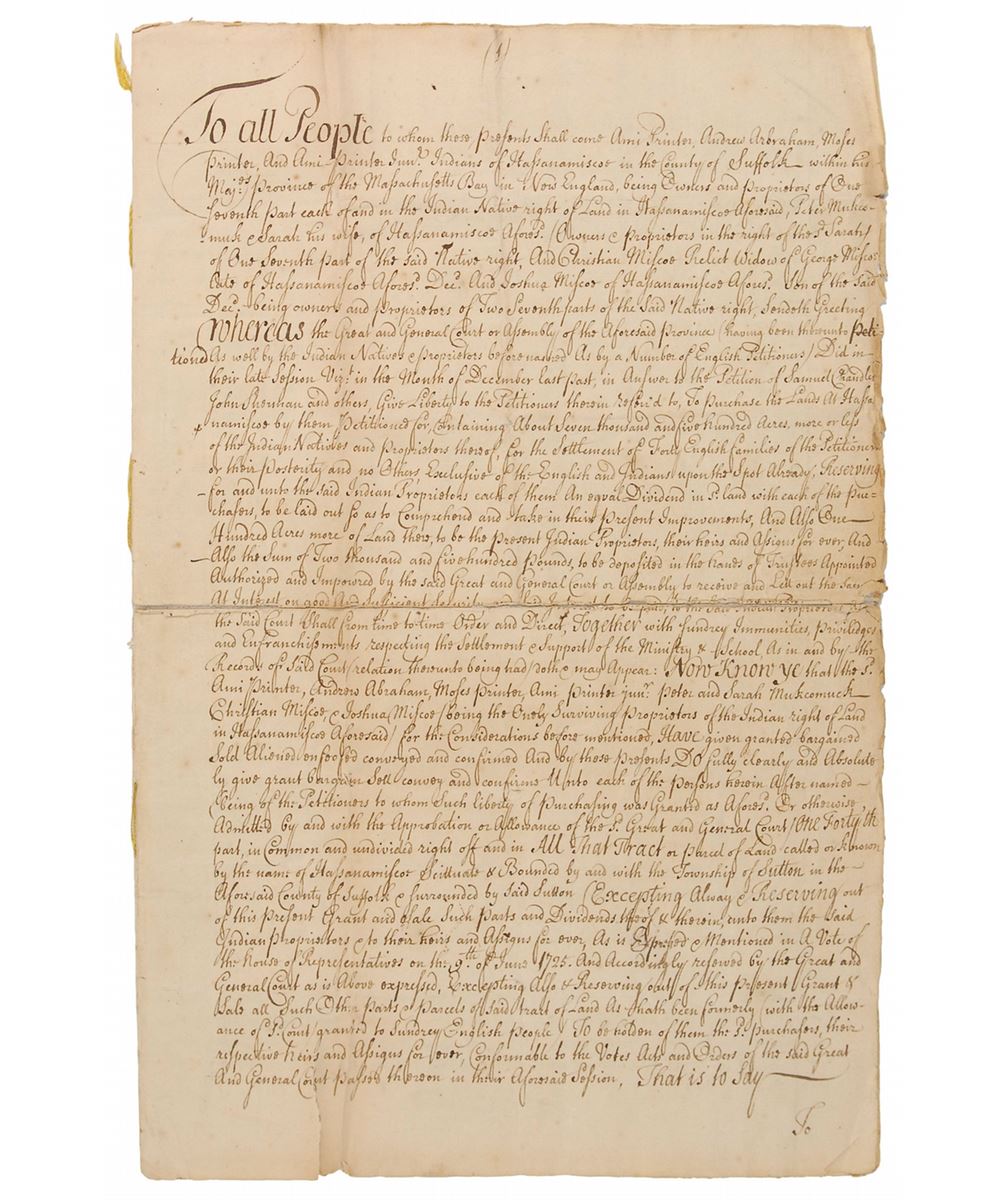 (1)
To all People to whom these presents Shall come Ami Printer, Andrew Abraham, Moses
Printer, And Ami Printer Junr. Indians of Hassanamiscoe in the County of Suffolk within his
Majes. Province of the Massachusetts Bay in New England, being Owners and proprietors of One
Seventh part each of and in the Indian Native right of Land in Hassanamiscoe Aforesaid, Peter Mukco-
muk & Sarah his wife, of Hassanamiscoe Afores. (Owners & proprietors in the right of the sd. Sarah)
of One Seventh part of the said Native right, And Christian Miscoe Relict Widow of George Miscoe
late of Hassanamiscoe Afores. Decd. And Joshua Miscoe of Hassanamiscoe Afores. Son of the Said
Decd. being owners and proprietors of Two Seventh parts of the Said Native right, Sendeth Greeting
Whereas the Great and General Court or Assembly of the Aforesaid province (having been thereunto Peti-
tiond As well by the Indian Natives & proprietors before named As by a Number of English Petitioners) Did in
their late Session Vizt. in the Month of December last past, in Answer to the Petition of Samuel Chandler
John Sherman and others, Give Liberty to the Petitioners therein referd to, To Purchase the Lands At Hassa
namiscoe by them Petitioned for, Containing About Seven thousand and five hundred Acres, more or less
of the Indian Natives and Proprietors thereof, for the Settlement of Forty English families of the Petitioners
or their Posterity and no Others Exclusive of the English and Indians upon the Spot Already, Reserving
for and unto the Said Indian Proprietors each of them An equal Dividend in sd. land with each of the Pur=
chasers, to be laid out so as to Comprehend and take in their Present Improvements, And Also One
Hundred Acres more of Land there, to be the present Indian Proprietors, their heirs and Assigns for ever, And
Also the Sum of Two thousand and five hundred Pounds, to be deposited in the hands of Trustees Appointed
Authorized and Impowred by the said Great and General Court or Assembly to receive and Let out the Same
At Interest on good And Sufficient Security and said Interest to be paid, to the Said Indian Proprietors as
the Said Court Shall from time to time Order and Direct, Together with sundrey Immunities, priviledges
and Enfranchisements respecting the Settlement & Support of the Ministry & School, As in and by the
Records of Said Court (relation thereunto being had) doth & may Appear: Now Know ye that the sd.
Ami Printer, Andrew Abraham, Moses Printer, Ami Printer junr. Peter and Sarah Mukcomuck
Christian Miscoe, & Joshua Miscoe (being the Onely Surviving Proprietors of the Indian right of Land
in Hassanamiscoe Aforesaid) for the Considerations before mentioned, Have given granted bargained
Sold Aliened enfeofed conveyed and confirmed And by these presents Do fully clearly and Absolute
ly give grant bargain Sell convey and confirme Unto each of the Persons herein After named
(being of the Petitioners to whom Such liberty of purchasing was Granted as Afores. Or otherwise
Admitted by and with the Approbation or Allowance of the sd. Great and General Court) One Fortyeth
part, in Common and undivided right off and in All That Tract or parcel of Land called or known
by the name of Hassanamiscoe Scittuate & Bounded by and with the Township of Sutton in the
Aforesaid County of Suffolk & surrounded by Said Sutton (Excepting Alway & Reserving out
of this Present Grant and Sale Such Parts and Dividends thereof & therein, unto them the Said
Indian proprietors & to their heirs and Assigns for ever, As is Expressed & Mentioned in A Vote of
the House of Representatives on the 9th of June 1725. And Accordingly reserved by the Great and
General Court as is Above expressed, Excepting Also & Reserving out of this present Grant &
Sale all Such Other Parts & Parcels of Said tract of Land As hath been formerly (with the Allow-
ance of sd. Court) granted to Sundrey English people) To be holden of them the sd. purchasers, their
respective heirs and Assigns for ever, Conformable to the Votes Acts and Orders of the said Great
And General Court passed thereon in their Aforesaid Session, That is to Say
To